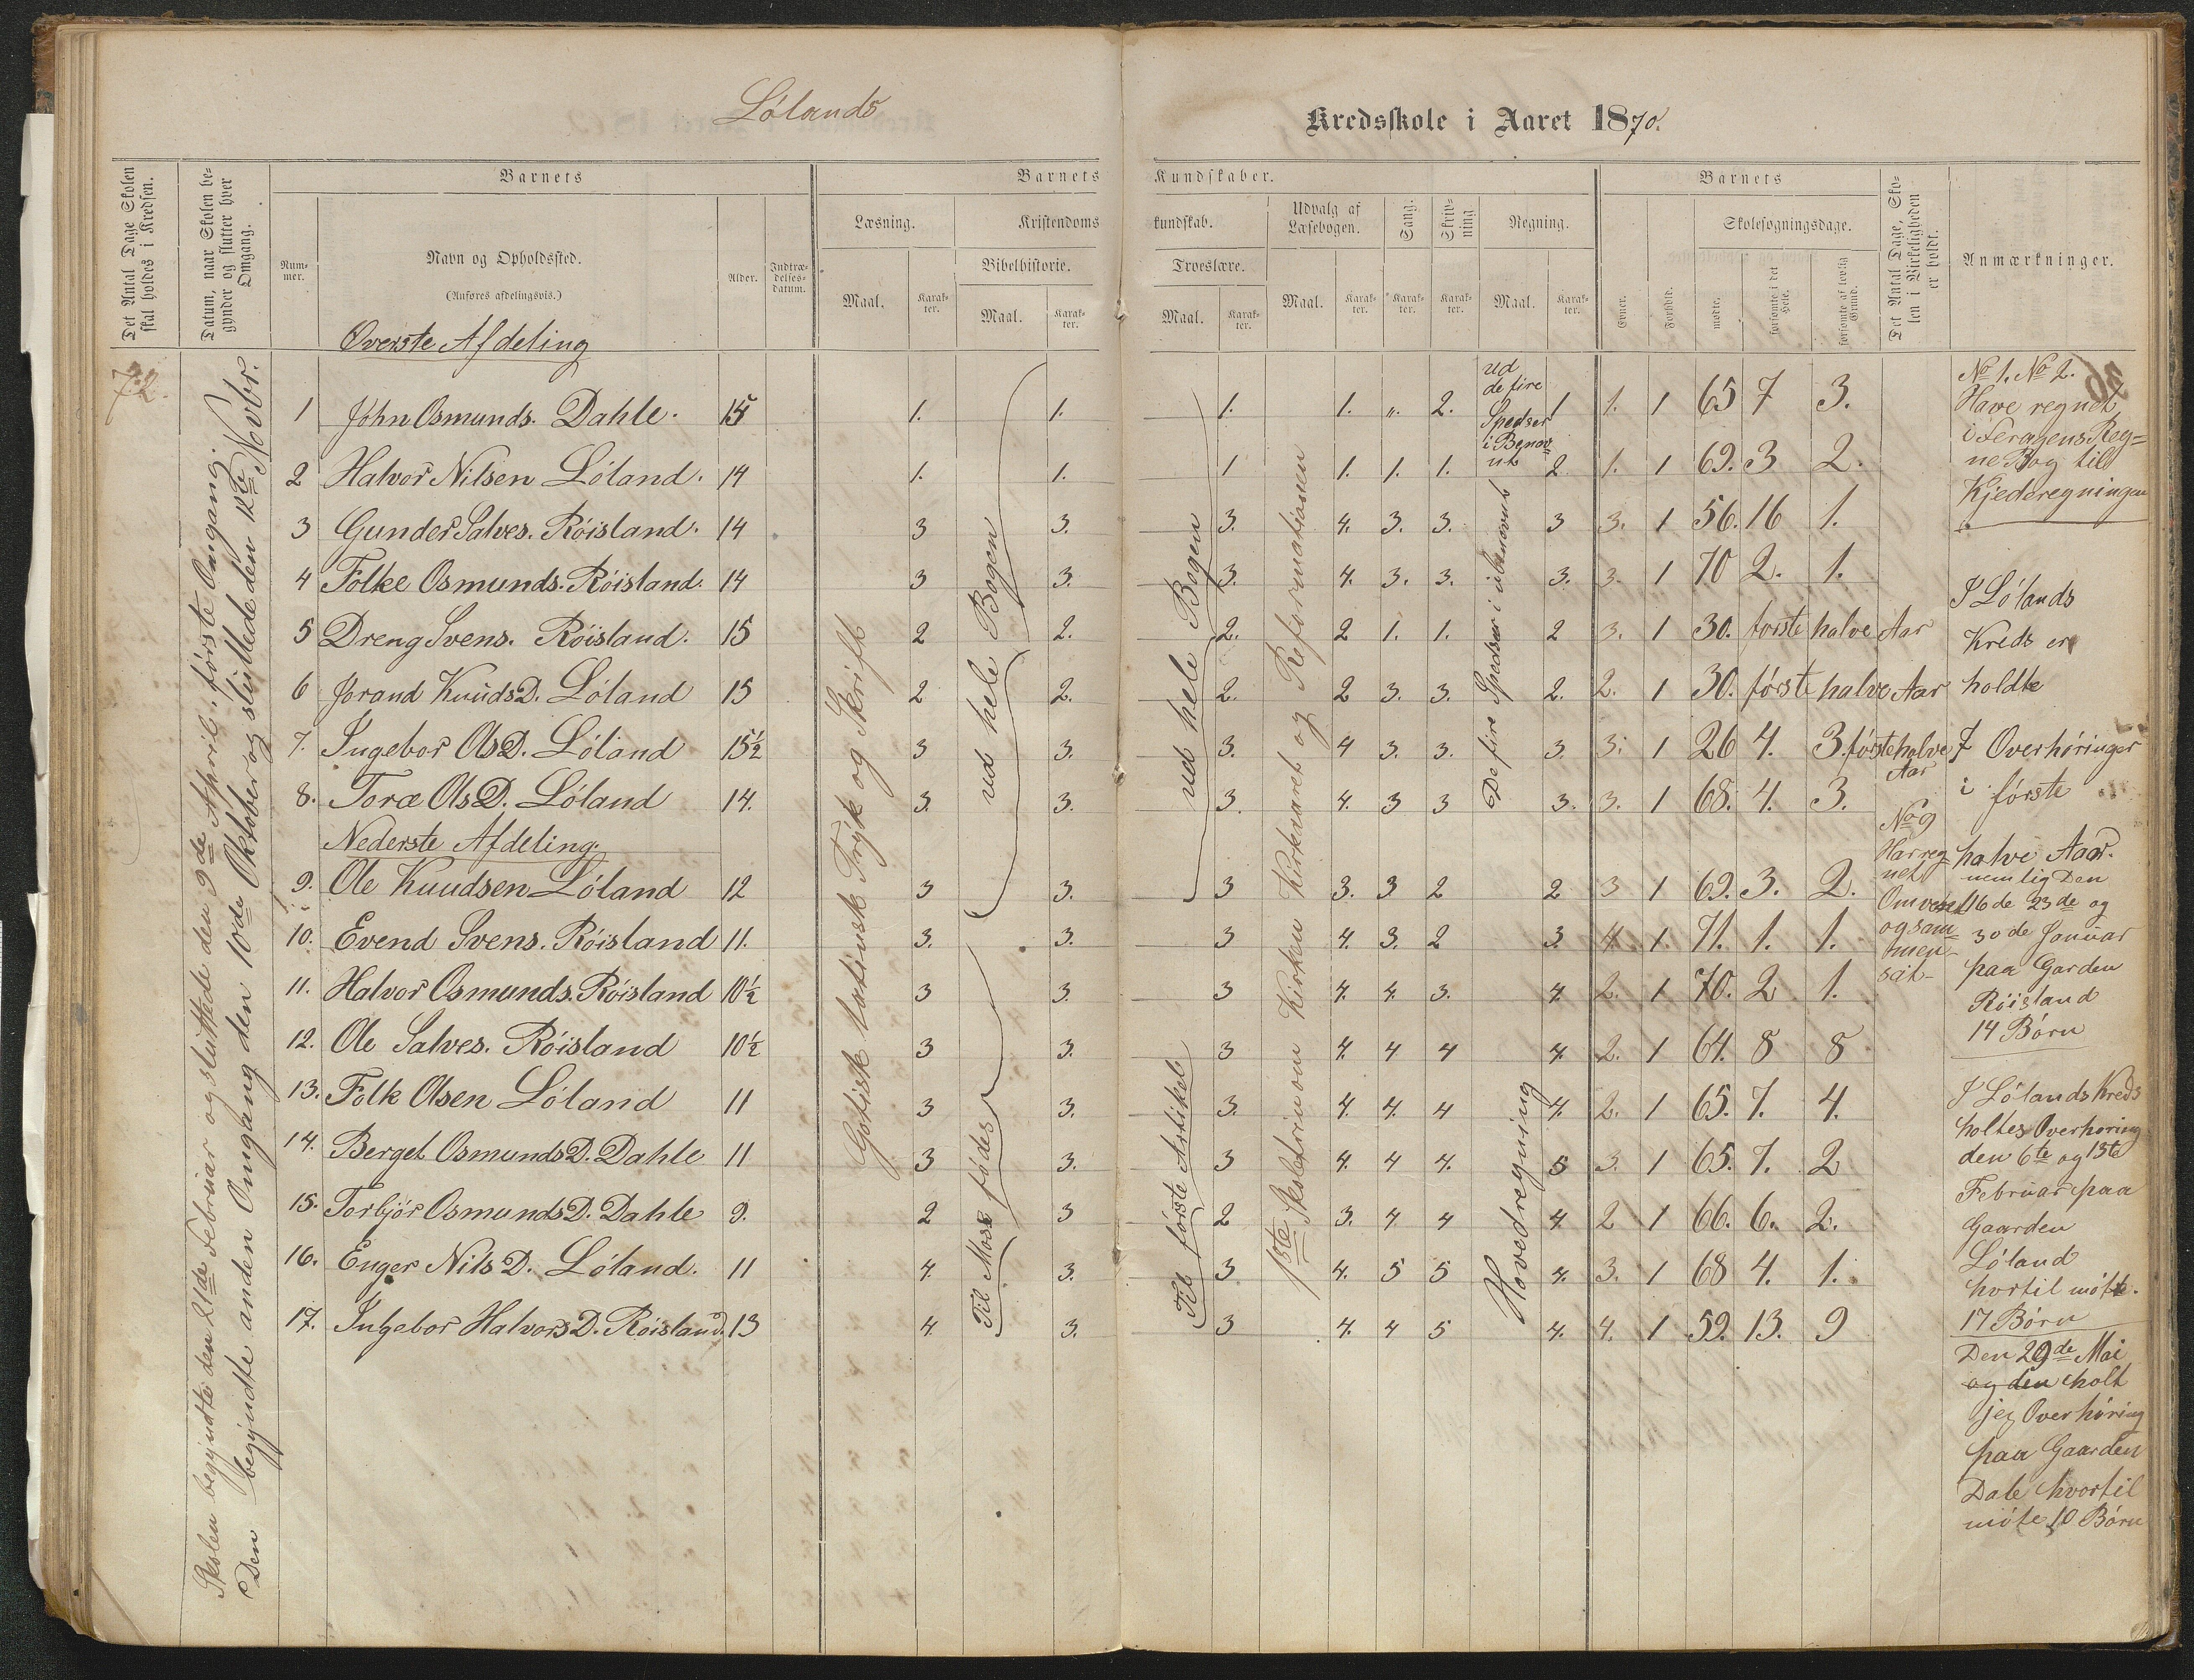 Lølands
Kredsskole i Aaret 1870.
Det Antal Dage Skolen skal holdes i Kredsen.
Datum, naar Skolen begynder og slutter hver Omgang.
Barnets
Barnets Kundskaber.
Barnets
Num-mer.
Navn og Opholdssted.
(Anføres afdelingsvis.)
Alder.
Indtræ-delses-datum.
Læsning.
Kristendomskundskab.
Udvalg af Læsebogen.
Sang.
Skriv-ning
Regning.
Bibelhistorie.
Troeslære.
Maal. Karak-ter. Maal. Karak-ter. Maal. Karak-ter. Maal. Karak-ter. Karak-ter. Karak-ter. Maal. Karak-ter.
Evner.
Forhold.
Skolesøgningsdage.
mødte.
forsømte i det Hele.
forsømte af lovlig Grund.
Det Antal Dage, Sko-len i Virkeligheden er holdt.
Anmærkninger.
72.
Skolen begyndte den 21de Februar og sluttede den 9de April. første Omgang.
Den begyndte anden Omgang den 10de Oktober og sluttede den 12te Novbr.
Øverste Afdeling
1 John Osmunds. Dahle. 15 1. 1. 1. 1. „. 2. 1 1. 1 65 7 3.
2 Halvor Nilsen Løland. 14 1. 1. 1 1. 1. 1. 2 1. 1 69. 3 2.
3 Gunder Salves. Røisland. 14 3 3. 3. 4. 3. 3. 3 3. 1 56. 16 1.
4 Folke Osmunds. Røisland. 14 3 3. 3. 4. 3. 3. 3. 3. 1 70 2. 1.
5 Dreng Svens. Røisland. 15 2 2. 2. 2 1. 1. 2 3. 1 30. første halve Aar
6 Jorand KnudsD. Løland 15 2 2. 2. 2 3. 3. 2. 2. 1 30. første halve Aar
7. Ingebor OlsD. Løland 15½ 3 3. 3. 4 3. 3. 3. 3. 1 26 4. 3. første halve Aar
8. Toræ OlsD. Løland 14. 3. 3. 3. 4. 3 3 3. 3. 1 68. 4. 3.
Nederste Afdeling.
9. Ole Knudsen Løland 12 3 3. 3 3. 3 2 2 3 1 69. 3. 2.
10. Evend Svens. Røisland 11. 3. 3. 3 4. 3. 2 3 4. 1. 71. 1. 1.
11. Halvor Osmunds. Røisland 10½ 3 3. 3 4. 4. 3. 4. 2. 1 70. 2 1.
12. Ole Salves. Røisland 10½ 3 3. 3 4. 4 4 4. 2. 1 64. 8 8
13. Folk Olsen Løland 11 3 3. 3. 4. 4. 4 4. 2. 1 65. 7. 4.
14. Berget OsmundsD. Dahle 11 3 3. 3 4. 4 4. 5 3. 1 65. 7. 2
15. Torbjør OsmundsD. Dahle 9. 2 3 2 3. 4 4 4 2 1 66. 6. 2.
16. Enger NilsD. Løland. 11 4. 3. 3. 4. 5 5 4. 3. 1 68 4. 1.
17. Ingebor HalvorsD. Røisland. 13 4. 3. 3 4. 4 5 4. 4. 1 59. 13. 9
Gotisk latinsk Tryk og Skrift
ud hele Bogen
Til Mose fødes
ud hele Bogen
Til første Artikel
1ste Skoletrin om Kirken Kirkeaaret og Reformationen
ud
de fire
Spedser
i Benæv
nt
De fire Spedser i ubenævnt
Hovedregning
No 9
Har reg-
net
Omvendt
og sam-
men-
sat-
No 1. No 2.
Have regnet
i Feragens Reg=
neBog til
Kjederegningen
I Lølands
Kreds er
holdte
7 Overhøringer
i første
halve Aar.
nemlig Den
16de 23de og
30de Januar
paa Garden
Røisland
14 Børn
I Lølands Kreds
holtes Overhøring
den 6te og 13te
Februar paa
Gaarden
Løland
hvortil møtte.
17 Børn
Den 29de Mai
og den holt
jeg Overhøring
paa Gaarden
Dale hvortil
møte 10 Børn